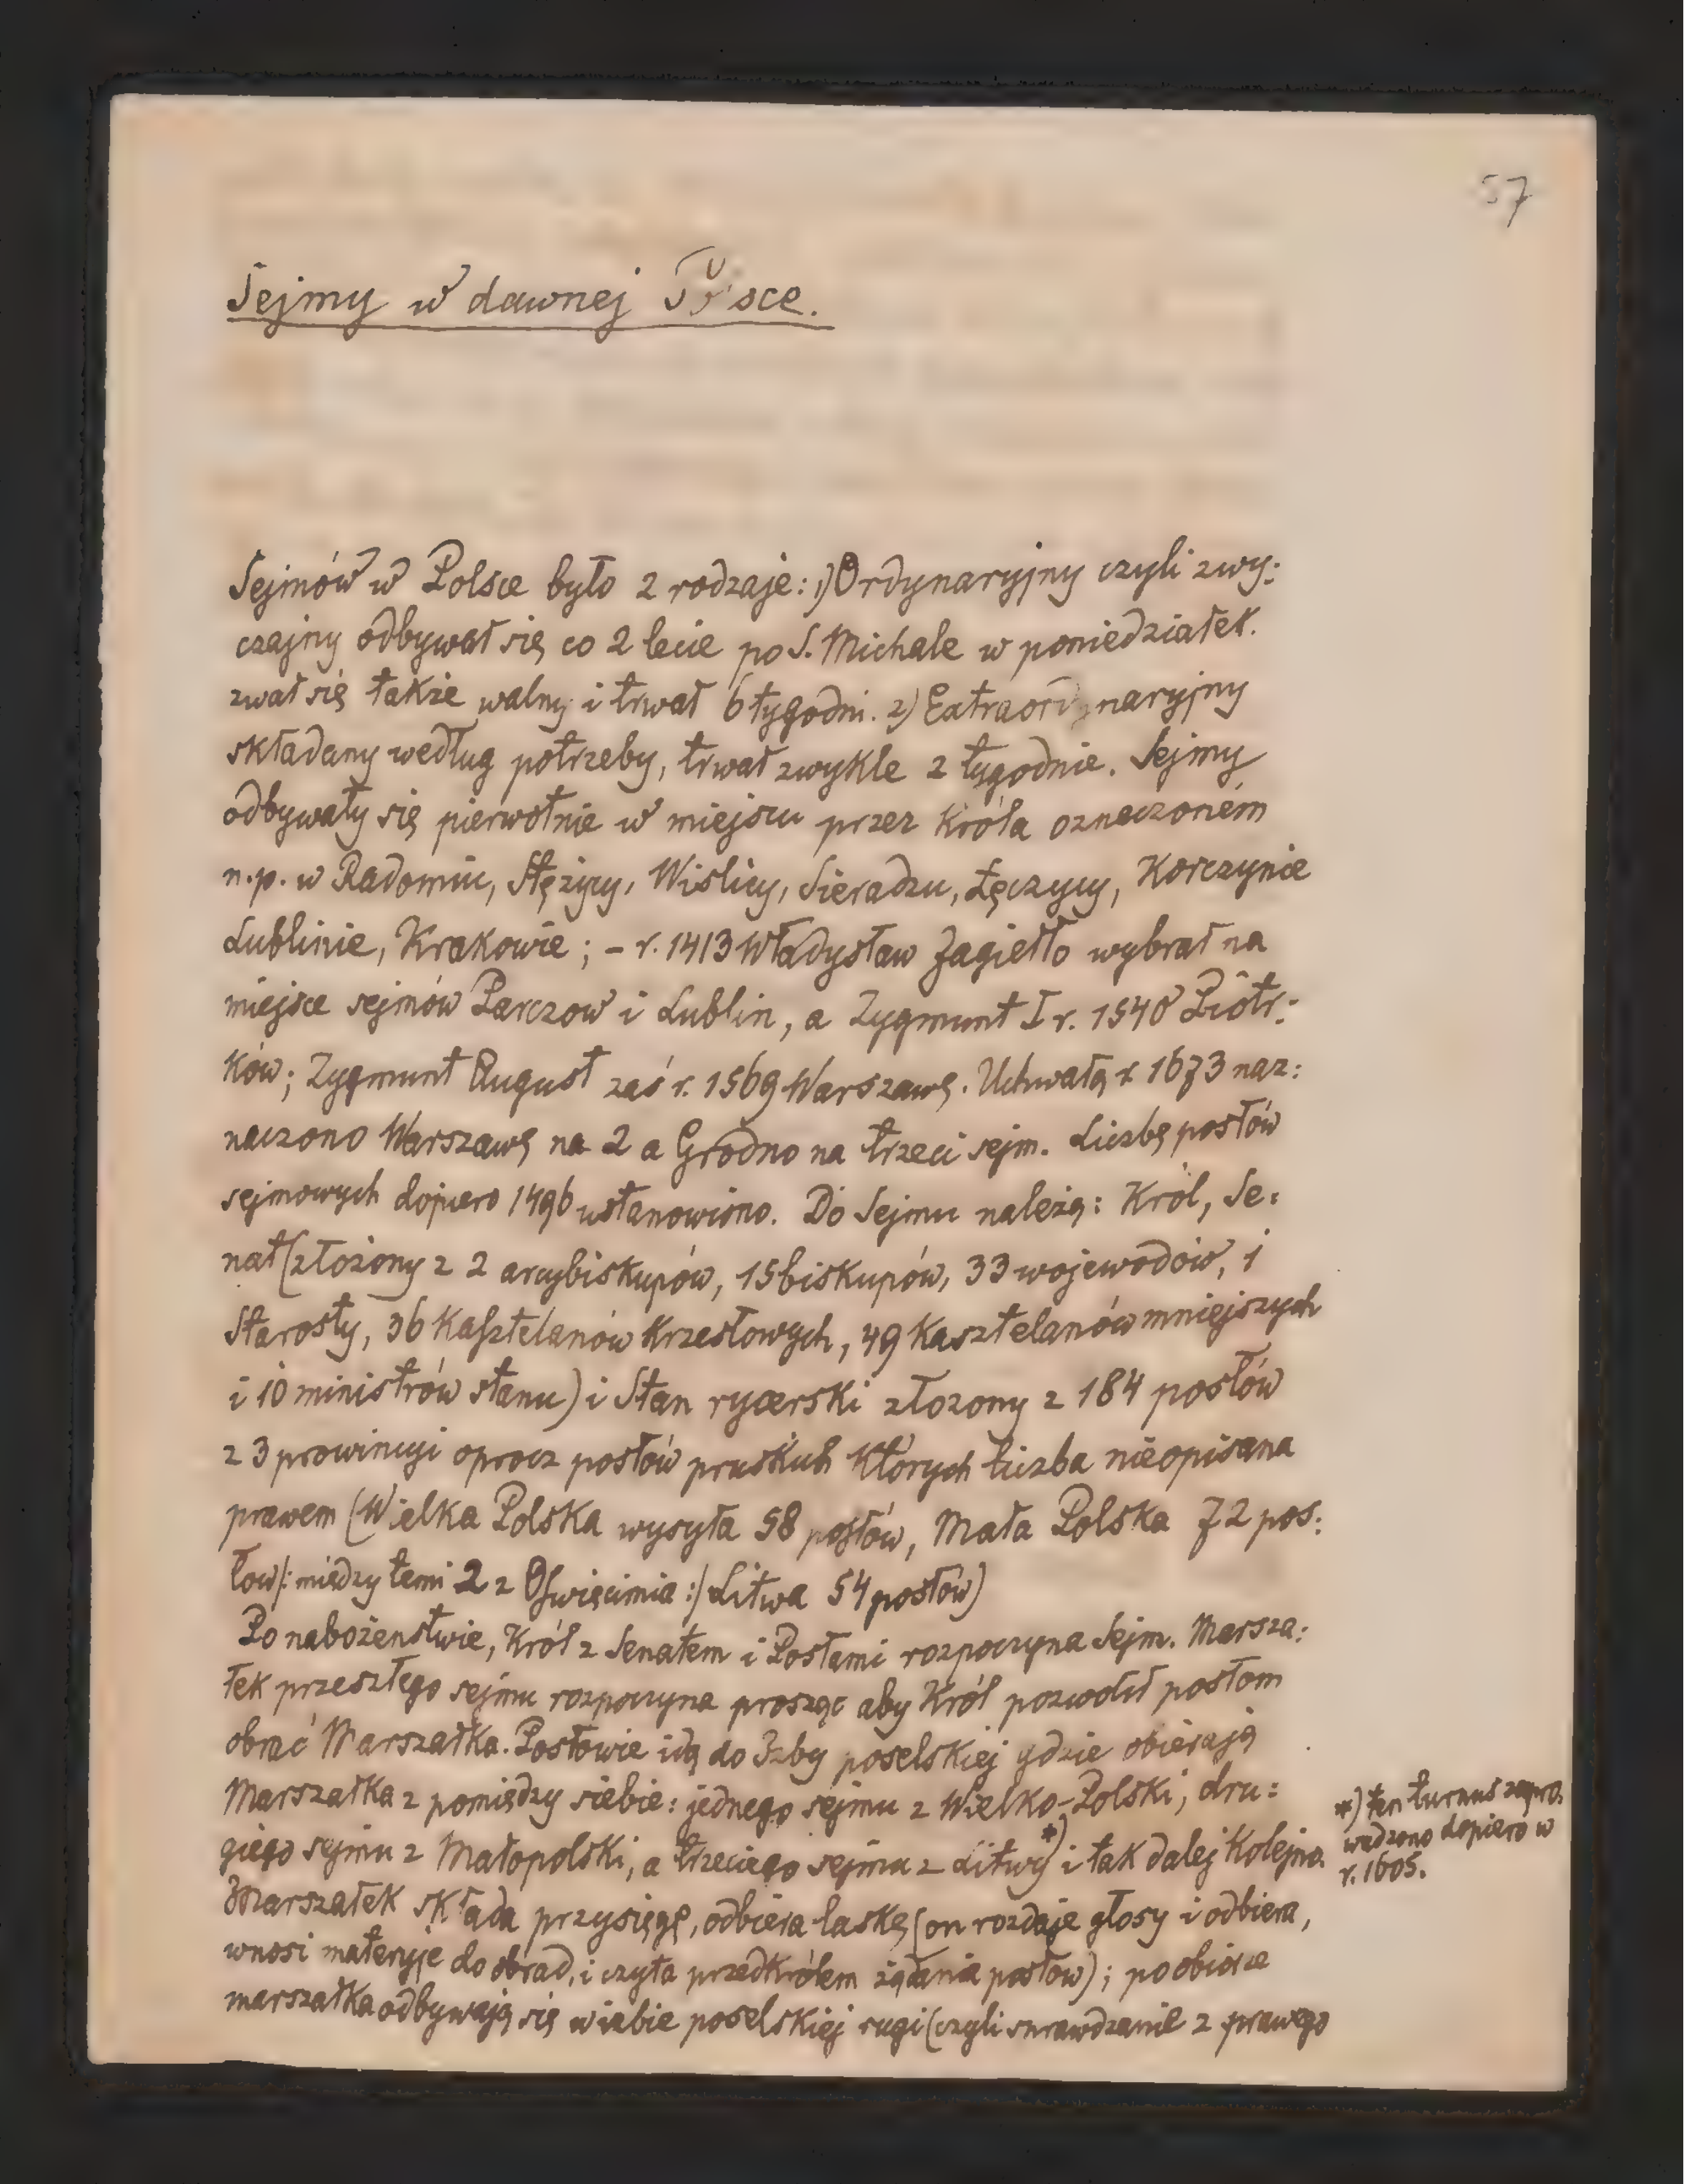 57
Sejmy w dawnej Polsce.
Sejmów w Polsce było 2 rodzaje: 1) Ordynaryjny czyli zwy:
czajny odbywał się co 2 lecie po S. Michale w poniedziałek.
zwał się także walny i trwał 6 tygodni. 2) Extraordynaryjny
składany według potrzeby, trwał zwykle 2 tygodnie. Sejmy
odbywały się pierwotnie w miejscu przez Króla oznaczoném
n.p. w Radomiu, Stężycy, Wiślicy, Sieradzu, Łęczycy, Korczynie
Lublinie, Krakowie; – r. 1413 Władysław Jagiełło wybrał na
miejsce sejmów Parczow i Lublin, a Zygmunt I r. 1540 Piotr:
ków; Zygmunt August zaś r. 1569 Warszawę. Uchwałą r. 1673 naz:
naczono Warszawę na 2 a Grodno na trzeci sejm. Liczbę posłów
sejmowych dopiero 1496 ustanowiono. Do Sejmu należą: Król, Se:
nat (złożony z 2 arcybiskupów, 15 biskupów, 33 wojewodów, 1
Starosty, 36 Kasztelanów Krzesłowych, 49 Kasztelanów mniejszych
i 10 ministrów stanu) i Stan rycerski złożony z 184 posłów
z 3 prowincyi oprocz posłów pruskich Których liczba nieopisana
prawem (Wielka Polska wysyła 58 posłów, Mała Polska 72 pos:
łow/: między temi 2 z Oswięcimia :/ Litwa 54 posłów)
Po nabożeństwie, Król z Senatem i Posłami rozpoczyna Sejm. Marsza:
łek przeszłego sejmu rozpoczyna prosząc aby Król pozwolił posłom
obrać Marszałka. Posłowie idą do Izby poselskiej gdzie obierają
Marszałka z pomiędzy siebie: jednego sejmu z Wielko-Polski, dru:
giego sejmu z Małopolski, a trzeciego sejmu z Litwy *) i tak dalej Kolejno.
Marszałek składa przysięgę, odbiera laskę (on rozdaje głosy i odbiera,
wnosi materyje do obrad, i czyta przed królem żądania posłow); po obiorze
marszałka odbywają się w izbie poselskiej rugi (czyli sprawdzanie z prawego
*) ten turnus zapro.
wadzono dopiero w
r. 1605.